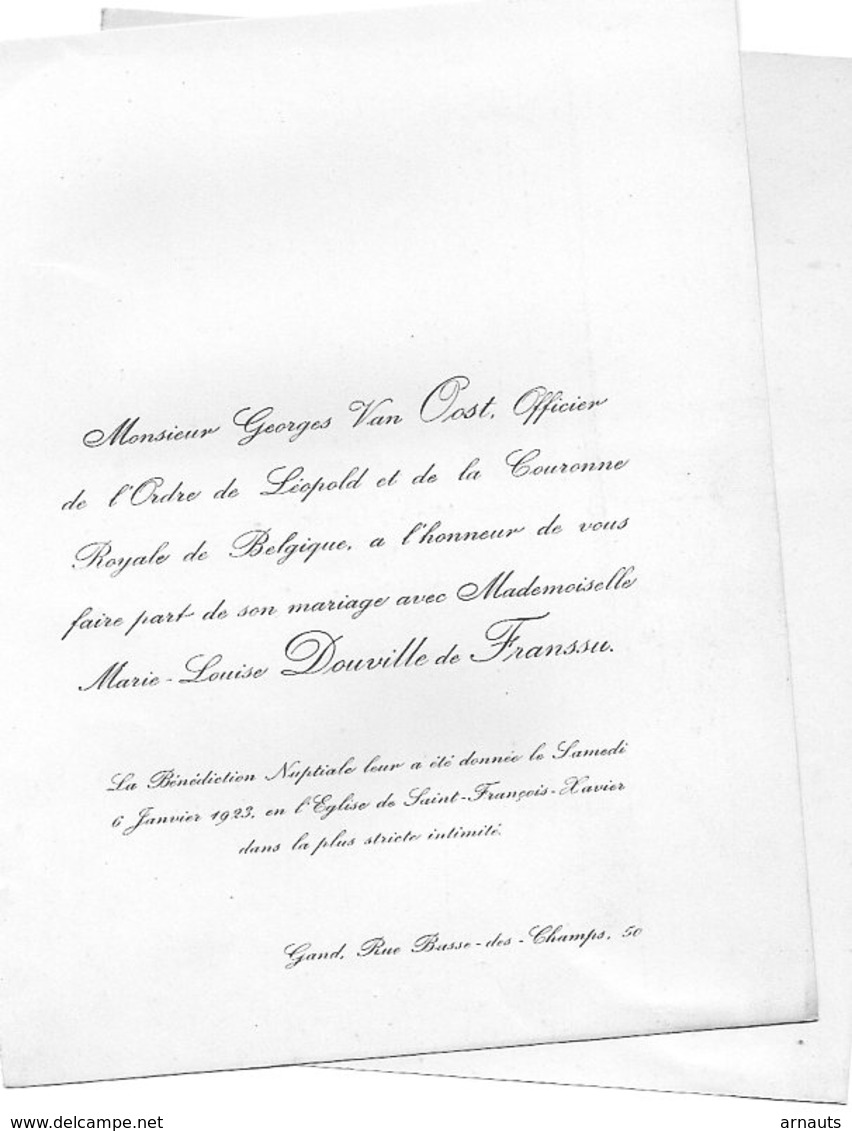 Monsieur Georges Van Oost, Officier
de l'Ordre de Léopold et de la Couronne
Royale de Belgique, a l'honneur de vous
faire part de son mariage avec Mademoiselle
Marie-Louise Douville de Franssu.
La Bénédiction Nuptiale leur a été donnée le Samedi
6 Janvier 1923, en l'Eglise de Saint-François-Xavier
dans la plus stricte intimité.
Gand, Rue Basse-des-Champs, 50
delcampe.net
arnauts